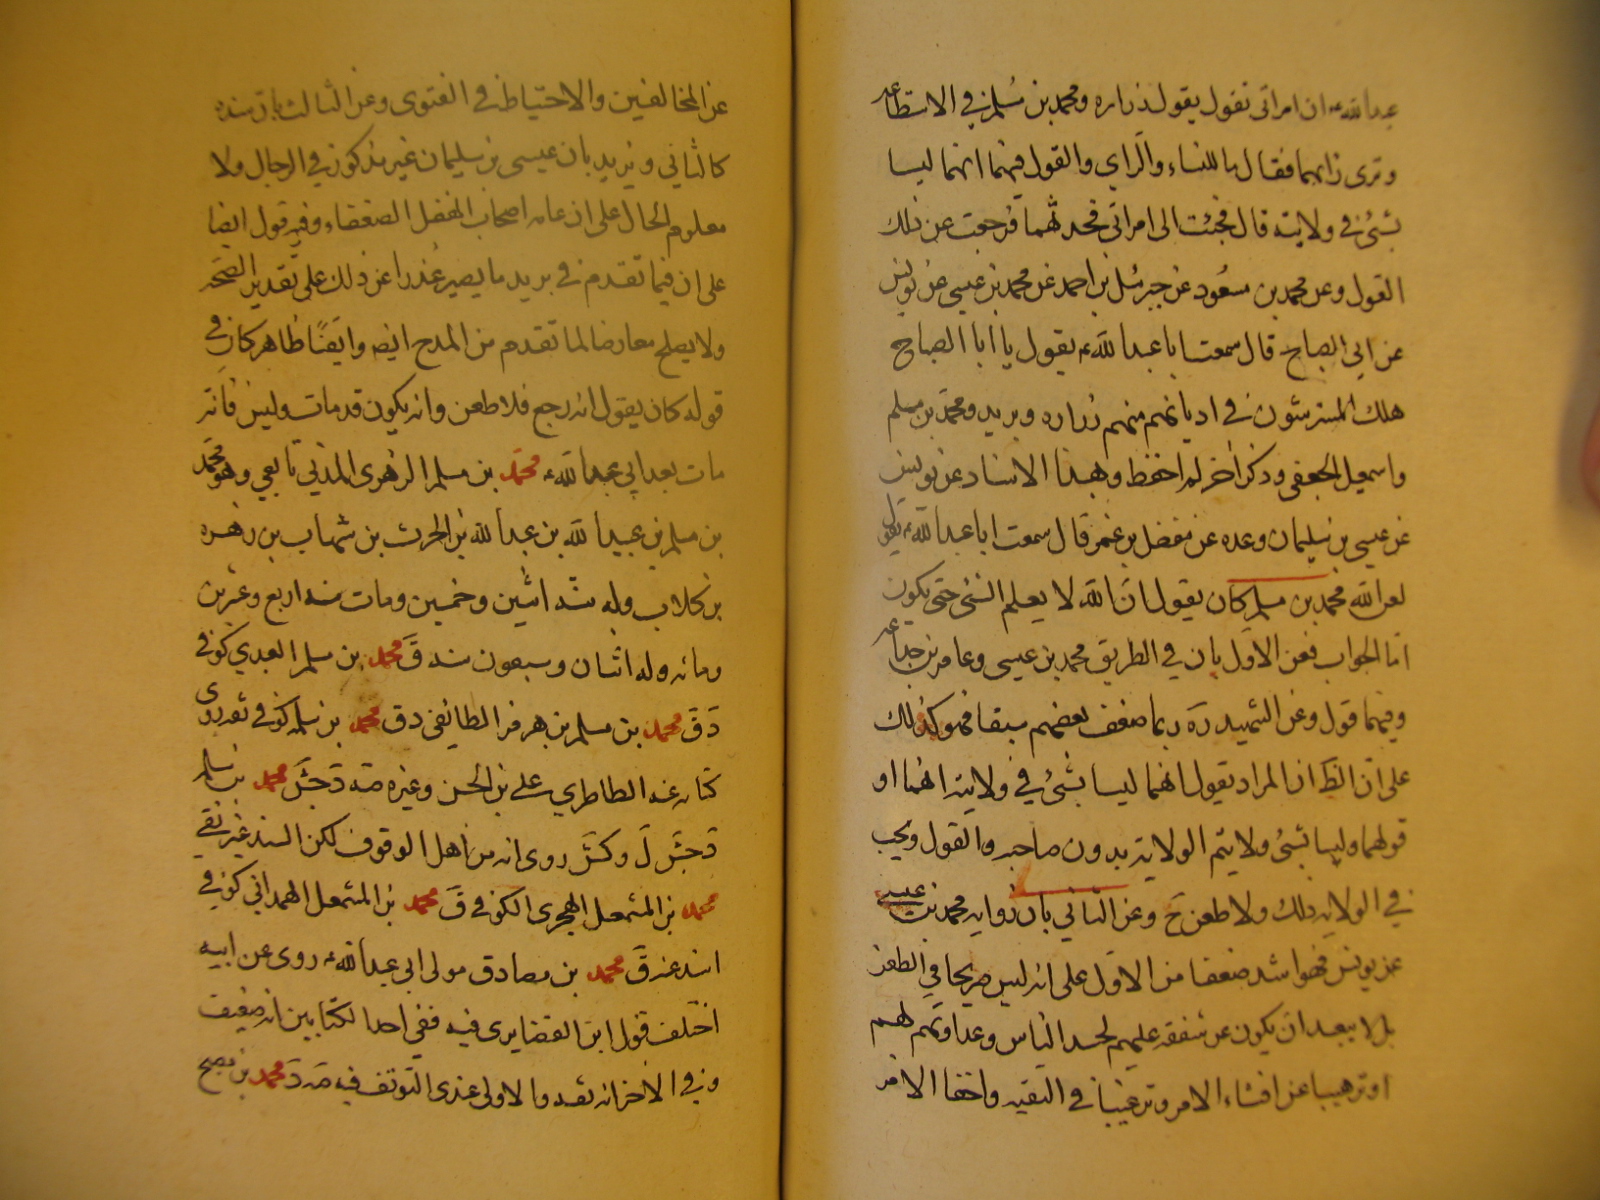 عبدالله ان امراتى تقول بقول زراره ومحمد بن مسلم فى الاستطاعه
وترى رايهما فقال ما للنساء والراى والقول فيهما انهما ليسا
بشئ فى ولاية قال فجئت الى امراتى فحدثتها فرجعت عن ذلك
القول وعن محمد بن مسعود عن جبرئيل بن احمد عن محمد بن عيسى عن يونس
عن ابى الصباح قال سمعت ابا عبدالله يقول يا ابا الصباح
هلك المترئسون فى اديانهم منهم زراره وبريد ومحمد بن مسلم
واسمعيل الجعفى وذكر اخر لم احفظه وبهذا الاسناد عن يونس
عن عيسى بن سليمان وعده عن مفضل بن عمر قال سمعت ابا عبدالله يقول
لعن الله محمد بن مسلم كان يقول ان الله لا يعلم الشئ حتى يكون
اما الجواب فعن الاول بان فى الطريق محمد بن عيسى وعامر بن جذاعه
وفيهما قول وعن الشهيد ره ربما ضعف بعضهم سبقا فهو كذلك
على ان الظ ان المراد بقوله انهما ليسا بشئ فى ولايته انهما او
قولهما وليسا بشئ ولا يتم الولاية بدون صاحبه والقول ويجب
فى الولاية ذلك ولا طعن ح وعن الثانى بان روايه محمد بن عيسى
عن يونس فهو اشد ضعفا من الاول على انه ليس صريحا فى الطعن
بل لا يبعد ان يكون عن شفقة عليهم لحسد الناس وعداوتهم لهم
او ترهيبا عن افشاء الامر وترغيبا فى التقيه واخفا الامر
عن المخالفين والاحتياط فى الفتوى وعن الثالث بان سنده
كالثانى ويزيد بان عيسى بن سليمان غير مذكور فى الرجال ولا
معلوم الحال على ان عامه اصحاب المفضل الضعفاء وفيه قول ايضا
على ان فيما تقدم فى بريد ما يصير عذرا عن ذلك على تقدير الصحه
ولا يصلح معارضا لما تقدم من المدح ايضه وايضا ظاهر كان فى
قوله كان يقول انه رجع فلا طعن وانه يكون قد مات وليس فانه
مات بعد ابى عبدالله محمد بن مسلم الزهرى المدنى تابعى وهو محمد
بن مسلم بن عبيدالله بن عبدالله بن الحرث بن شهاب بن زهره
بن كلاب ولد سنة اثنين وخمسين ومات سنه اربع وعشرين
ومائه وله اثنان وسبعون سنه ق محمد بن مسلم العبدي كوفى
ق ق محمد بن مسلم بن هرمز الطائفى ق ق محمد بن مسلمه كوفى ثقه روى
كتابه عنه الطاطرى على بن الحسن وغيره صه د جش محمد بن مسلم
د جش ل وكش روى انه من اهل الوقوف لكن السند غير نقى
محمد بن المشمعل الهجرى الكوفى ق محمد بن المشمعل الهمدانى كوفى
اسند عنه ق محمد بن مصادف مولى ابى عبدالله روى عن ابيه
اختلف قول ابن الغضايرى فيه ففى احد الكتابين انه ضعيف
وفى الاخر انه ثقه والاولى عندى التوقف فيه صه د محمد بن مصبح